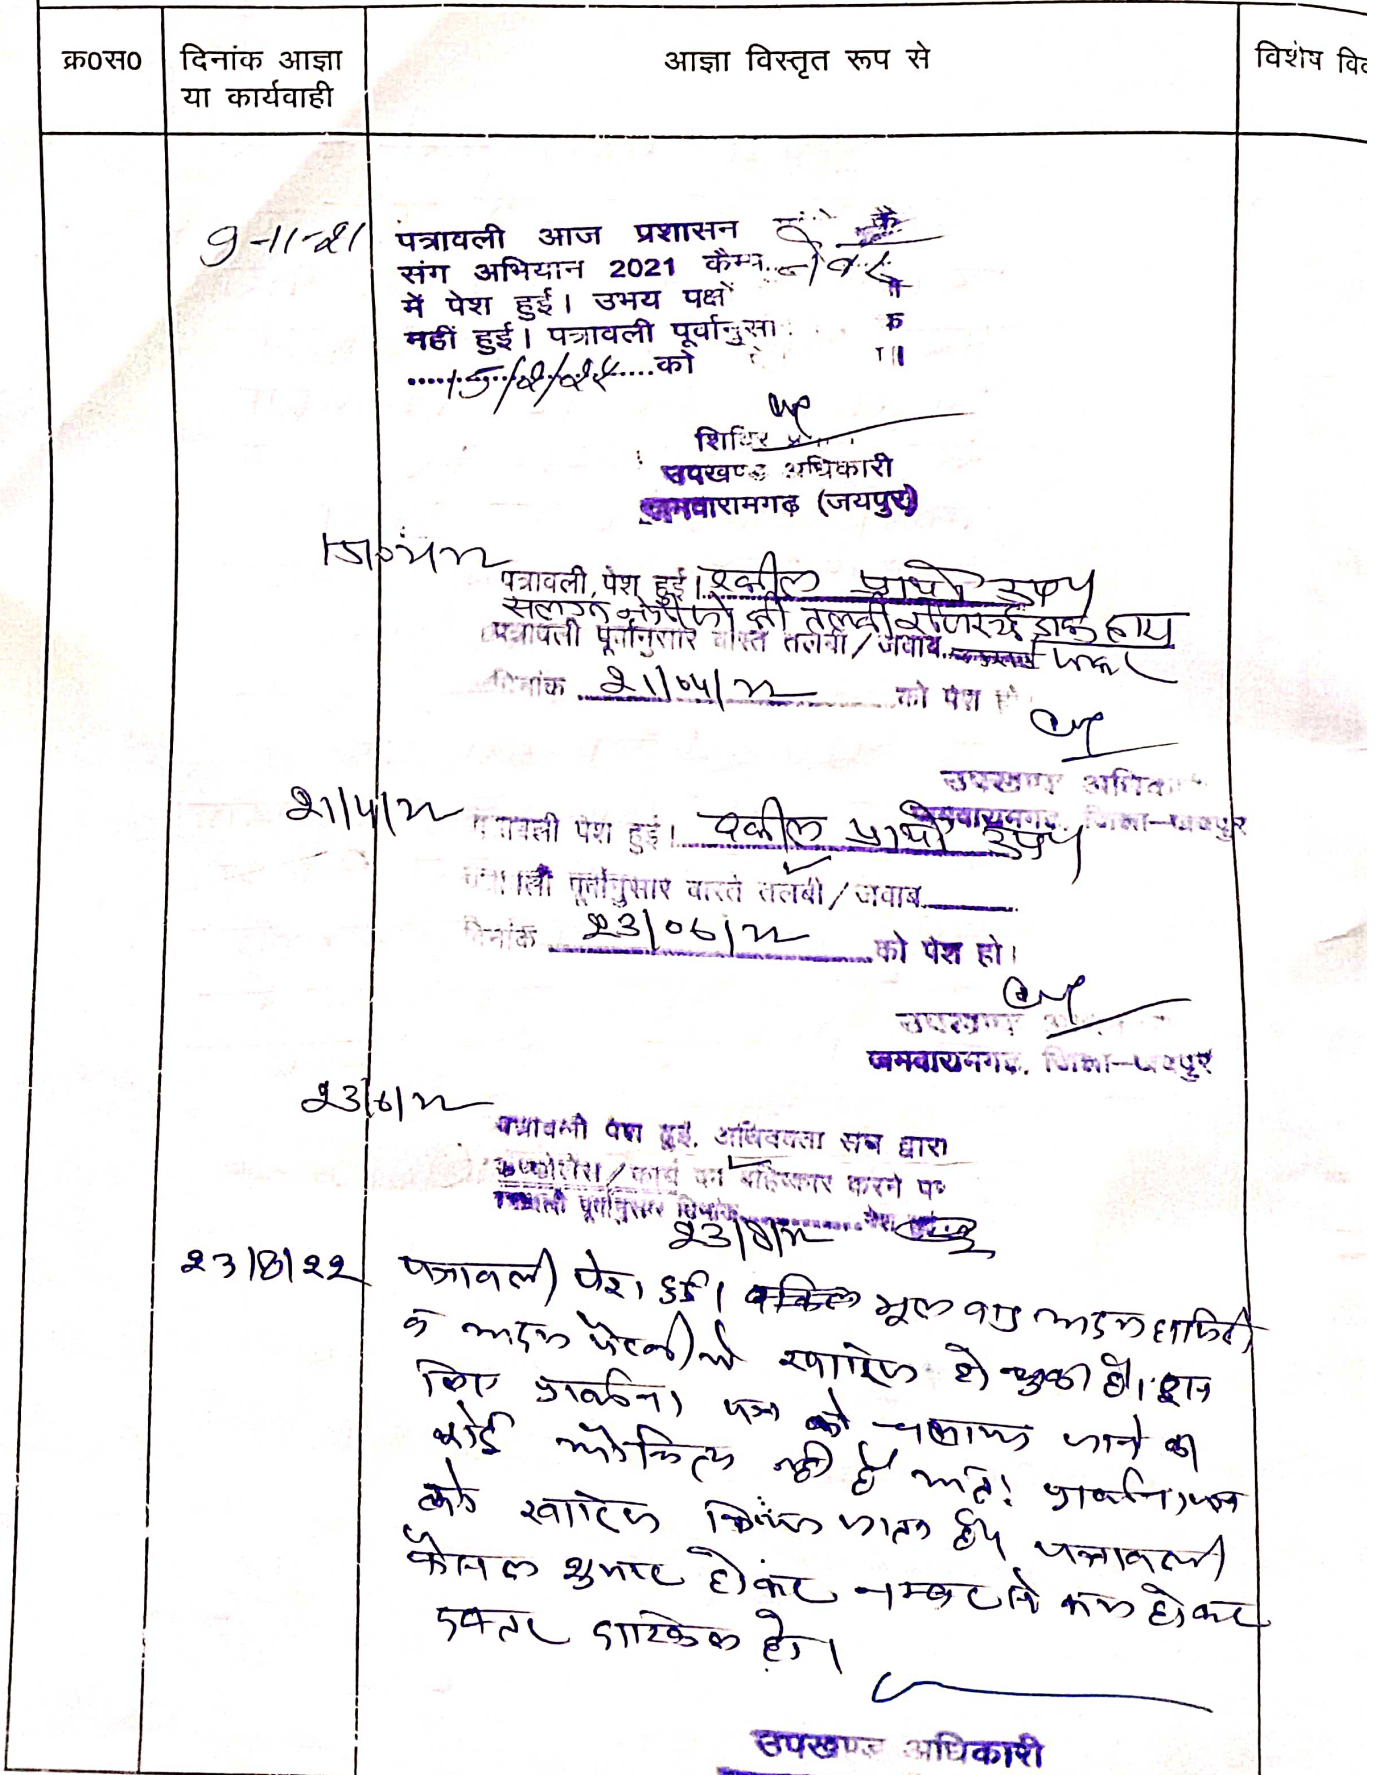 क्र0स0
दिनांक आज्ञा
या कार्यवाही
आज्ञा विस्तृत रूप से
विशेष
9-11-21
पत्रावली आज प्रशासन
संग अभियान 2021 कैम्प
में पेश हुई। उभय पक्षों
नहीं हुई। पत्रावली पूर्वानुसा
15/2/22 को
शिविर
उपखण्ड अधिकारी
जमवारामगढ़ (जयपुर)
पत्रावली पेश हुई। वकील प्रार्थी उप०
की तलबी रजिस्टर्ड डाक
पत्रावली पूर्वानुसार वास्ते तलबी/जवाब
दिनांक 21/04/22 को पेश हो
उपखण्ड अधिका
जमवारामगढ, जिला-जयपुर
21/4/22
पत्रावली पेश हुई। वकील प्रार्थी उप०
पत्रावली पूर्वानुसार वास्ते तलबी/जवाब
दिनांक 23/06/22 को पेश हो।
उपखण्ड
जमवारामगढ, जिला-जयपुर
23/6/22
पत्रावली पेश हुई, अधिवक्ता संघ द्वारा
/कार्य का बहिष्कार करने पर
पत्रावली पूर्वानुसार दिनांक पेश
23/8/22
23/8/22
पत्रावली पेश हुई। मूल वाद अदम हाजिरी
व अदम पैरवी में खारिज हो चुका है। इस
लिए प्रार्थना पत्र को चलाये जाने का
कोई औचित्य नही है अतः प्रार्थना पत्र
को खारिज किया जाता है। पत्रावली
फैसल शुमार होकर नम्बर से कम होकर
दफ्तर दाखिल हो।
उपखण्ड अधिकारी